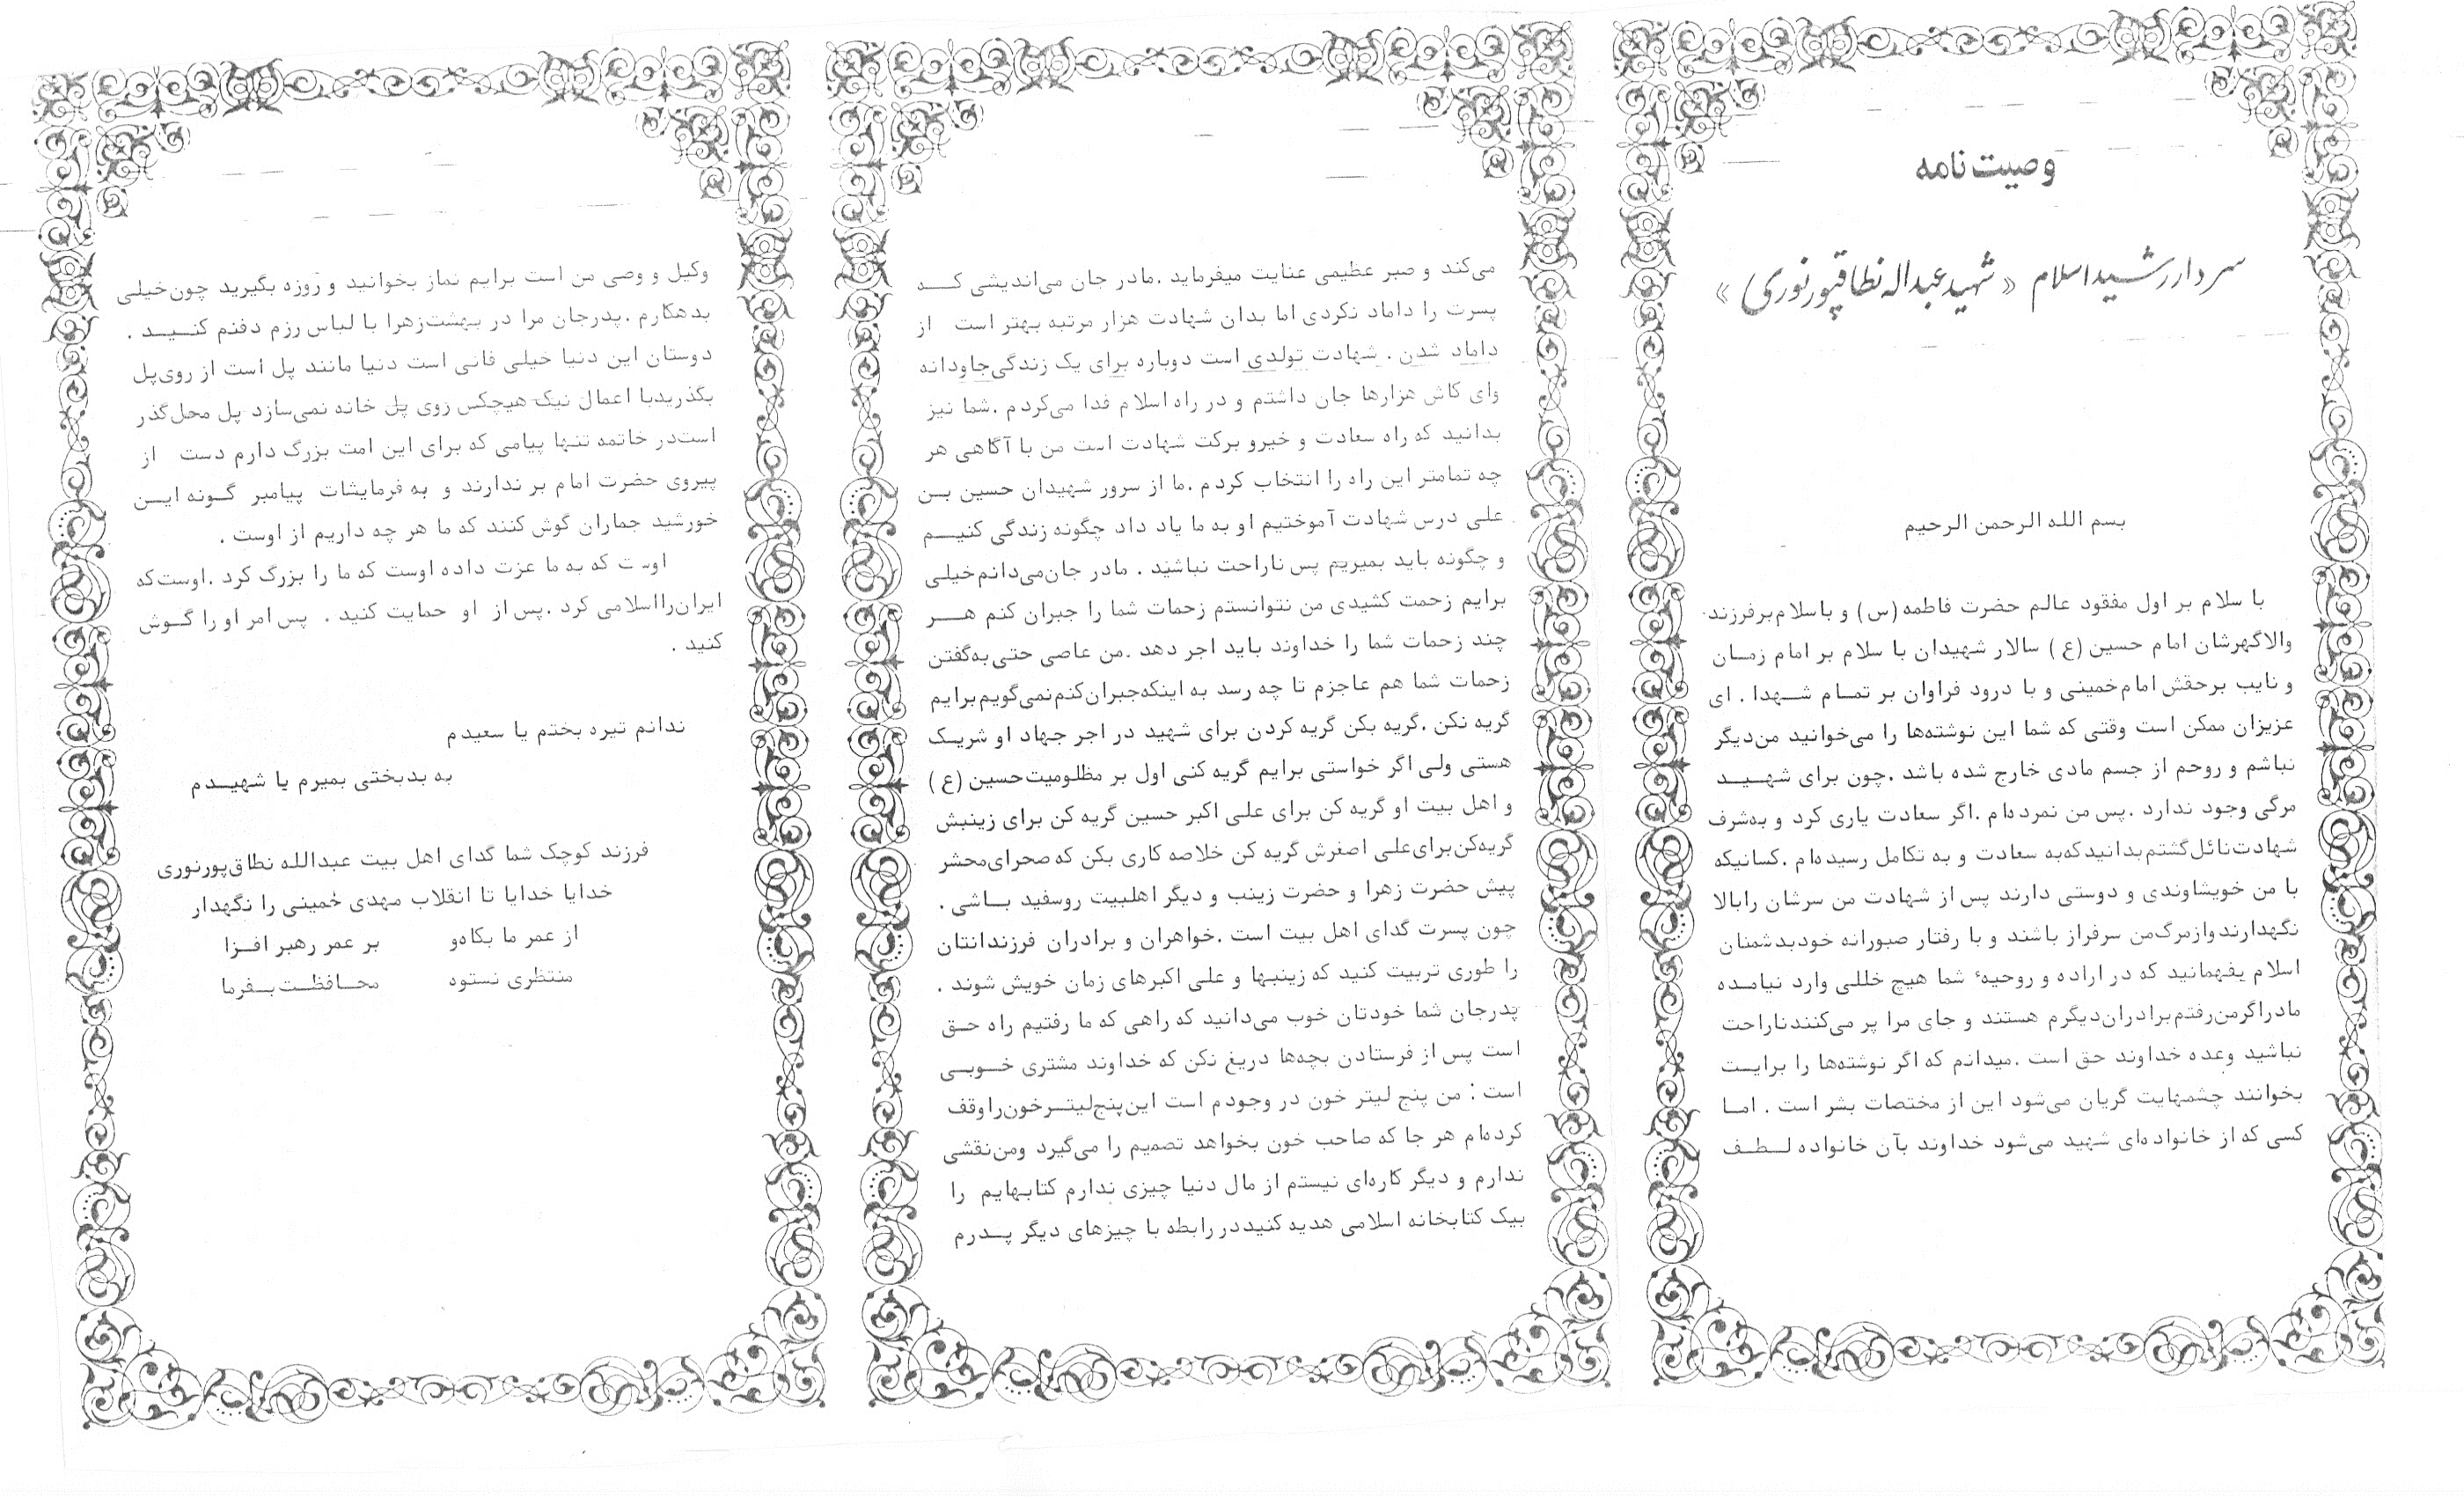 وصیت‌نامه
سردار رشید اسلام « شهید عبداله نطاقپور نوری »
بسم الله الرحمن الرحیم
با سلام بر اول مفقود عالم حضرت فاطمه (س) و باسلام‌بر‌فرزند
والاگهرشان امام حسین (ع) سالار شهیدان با سلام بر امام زمان
و نایب برحقش امام خمینی و با درود فراوان بر تمام شهدا . ای
عزیزان ممکن است وقتی که شما این نوشته‌ها را می‌خوانید من‌دیگر
نباشم و روحم از جسم مادی خارج شده باشد .چون برای شهید
مرگی وجود ندارد .پس من نمرده‌ام .اگر سعادت یاری کرد و به‌شرف
شهادت‌نائل‌گشتم‌بدانید‌که‌به سعادت و به تکامل رسیده‌ام .کسانیکه
با من خویشاوندی و دوستی دارند پس از شهادت من سرشان را‌بالا
نگهدارند‌و‌از‌مرگ‌من سرفراز باشند و با رفتار صبورانه خود‌بدشمنان
اسلام بفهمانید که در اراده و روحیهٔ شما هیچ خللی وارد نیامده
مادر‌اگر‌من‌رفتم‌برادران‌دیگرم هستند و جای مرا پر می‌کنند‌ناراحت
نباشید وعده خداوند حق است .میدانم که اگر نوشته‌ها را برایت
بخوانند چشمهایت گریان می‌شود این از مختصات بشر است . اما
کسی که از خانواده‌ای شهید می‌شود خداوند بآن خانواده لطف
می‌کند و صبر عظیمی عنایت میفرماید .مادر جان می‌اندیشی که
پسرت را داماد نکردی اما بدان شهادت هزار مرتبه بهتر است از
داماد شدن . شهادت تولدی است دوباره برای یک زندگی‌جاودانه
وای کاش هزارها جان داشتم و در راه اسلام فدا می‌کردم .شما نیز
بدانید که راه سعادت و خیرو برکت شهادت است من با آگاهی هر
چه تمامتر این راه را انتخاب کردم .ما از سرور شهیدان حسین بن
علی درس شهادت آموختیم او به ما یاد داد چگونه زندگی کنیم
و چگونه باید بمیریم پس ناراحت نباشید . مادر جان‌می‌دانم‌خیلی
برایم زحمت کشیدی من نتوانستم زحمات شما را جبران کنم هر
چند زحمات شما را خداوند باید اجر دهد .من عاصی حتی به‌گفتن
زحمات شما هم عاجزم تا چه رسد به اینکه‌جبران‌کنم‌نمی‌گویم‌برایم
گریه نکن .گریه بکن گریه کردن برای شهید در اجر جهاد او شریک
هستی ولی اگر خواستی برایم گریه کنی اول بر مظلومیت‌حسین (ع)
و اهل بیت او گریه کن برای علی اکبر حسین گریه کن برای زینبش
گریه‌کن‌برای‌علی اصغرش گریه کن خلاصه کاری بکن که صحرای‌محشر
پیش حضرت زهرا و حضرت زینب و دیگر اهلبیت روسفید باشی .
چون پسرت گدای اهل بیت است .خواهران و برادران فرزندانتان
را طوری تربیت کنید که زینبها و علی اکبرهای زمان خویش شوند .
پدرجان شما خودتان خوب می‌دانید که راهی که ما رفتیم راه حق
است پس از فرستادن بچه‌ها دریغ نکن که خداوند مشتری خوبی
است : من پنج لیتر خون در وجودم است این‌پنج‌لیتر‌خون‌را‌وقف
کرده‌ام هر جا که صاحب خون بخواهد تصمیم را می‌گیرد ومن‌نقشی
ندارم و دیگر کاره‌ای نیستم از مال دنیا چیزی ندارم کتابهایم را
بیک کتابخانه اسلامی هدیه کنید‌در رابطه با چیزهای دیگر پدرم
وکیل و وصی من است برایم نماز بخوانید و روزه بگیرید چون‌خیلی
بدهکارم .پدرجان مرا در بهشت‌زهرا با لباس رزم دفنم کنید .
دوستان این دنیا خیلی فانی است دنیا مانند پل است از روی‌پل
بگذرید‌با اعمال نیک هیچکس روی پل خانه نمی‌سازد پل محل‌گذر
است‌در خاتمه تنها پیامی که برای این امت بزرگ دارم دست از
پیروی حضرت امام بر ندارند و به فرمایشات پیامبر گونه این
خورشید جماران گوش کنند که ما هر چه داریم از اوست .
اوست که به ما عزت داده اوست که ما را بزرگ کرد .اوست‌که
ایران‌را‌اسلامی کرد .پس از او حمایت کنید . پس امر او را گوش
کنید .
ندانم تیره بختم یا سعیدم
به بدبختی بمیرم یا شهیدم
فرزند کوچک شما گدای اهل بیت عبدالله نطاق‌پورنوری
خدایا خدایا تا انقلاب مهدی خمینی را نگهدار
از عمر ما بکاه‌و بر عمر رهبر افزا
منتظری نستوه محافظت بفرما